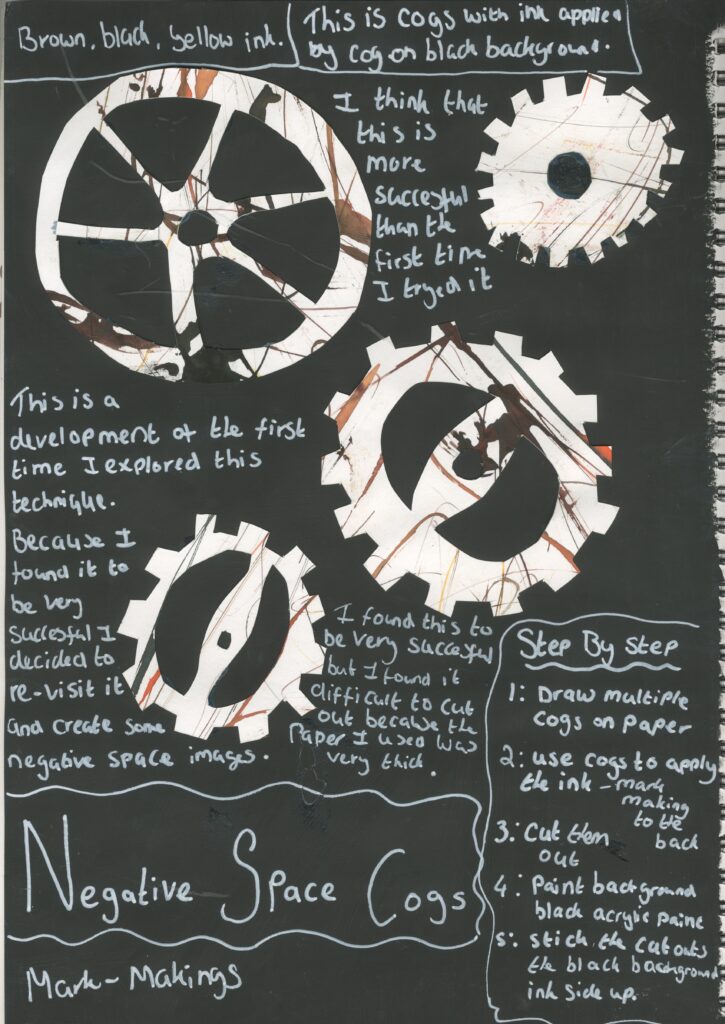 Brown, black, yellow ink.
This is cogs with ink applied
by cog on black background.
I think that
this is
more
succesful
than the
first time
I tryed it
This is a
development of the first
time I explored this
technique.
Because I
found it to
be very
succesful I
decided to
re-visit it
and create some
negative space images.
I found this to
be very succesful
but I found it
difficult to cut
out because the
paper I used was
very thick.
Step By Step
1: Draw multiple
cogs on paper
2: use cogs to apply
the ink - mark
making
to the
back
3: Cut them
out
4: Paint background
black acrylic paint
5: stick the cut outs
the black background
ink side up.
Negative Space Cogs
Mark-Makings